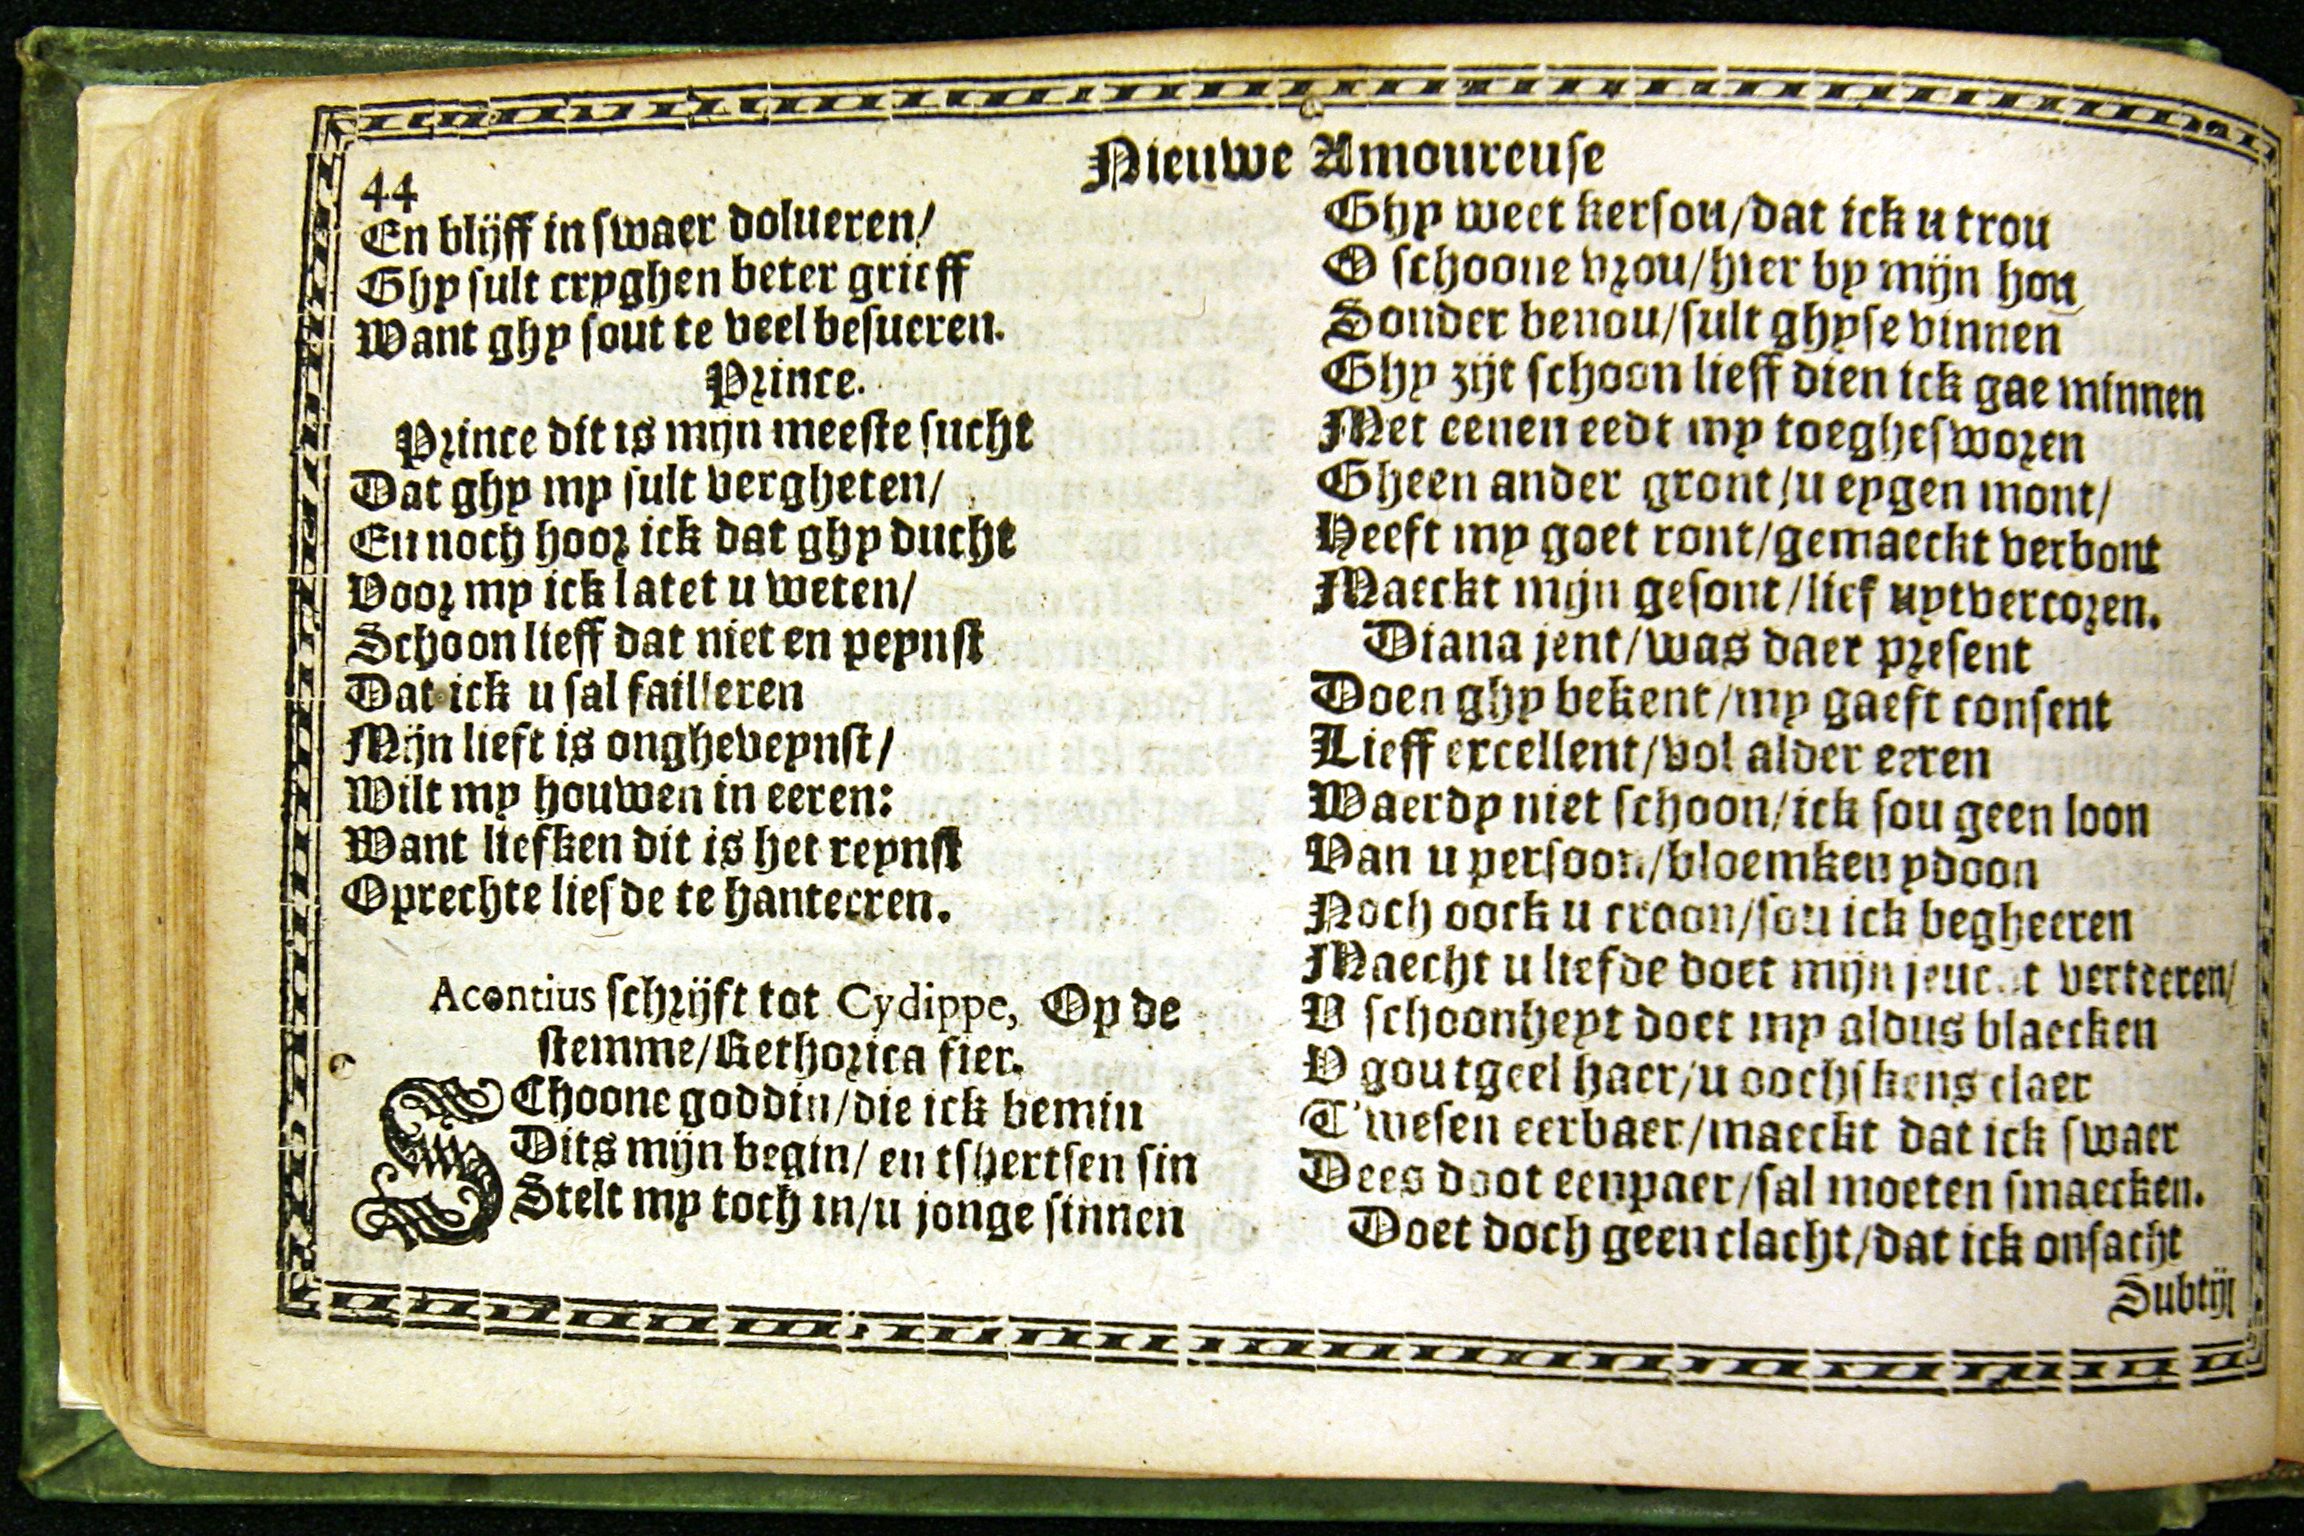 44
Nieuwe Amoureuse
En blijff in swaer dolueren/
Ghy sult cryghen beter grieff
Want ghy sout te veel besueren.
Prince.
Prince dit is mijn meeste sucht
Dat ghy my sult vergheten/
En noch hoor ick dat ghy ducht
Voor my ick latet u weten/
Schoon lieff dat niet en peynst
Dat ick u sal failleren
Mijn lieft is ongheveynst/
Wilt my houwen in eeren:
Want liefken dit is het reynst
Oprechte liefde te hanteeren.
Acontius schrijft tot Cydippe, Op de
stemme/Rethorica fier.
SChoone goddin/die ick bemin
Dits mijn begin/ en tshertsen sin
Stelt my toch in/u jonge sinnen
Ghy weet kersou/dat ick u trou
O schoone vrou/hier by mijn hou
Sonder benou/sult ghyse vinnen
Ghy zijt schoon lieff dien ick gae minnen
Met eenen eedt my toeghesworen
Gheen ander gront/u eygen mont/
Heeft my goet ront/gemaeckt verbont
Maeckt mijn gesont/lief uytvercoren.
Diana jent/was daer present
Doen ghy bekent/my gaeft consent
Lieff excellent/vol alder eeren
Waerdy niet schoon/ick sou geen loon
Van u persoon/bloemken ydoon
Noch oock u croon/sou ick begheeren
Maecht u liefde doet mijn verteeren/
V schoonheyt doet my aldus blaecken
V goutgeel haer/u oochskens claer
T'wesen eerbaer/maeckt dat ick swaer
Dees doot eenpaer/sal moeten smaecken.
Doet doch geen clacht/dat ick onsacht
Subtijl